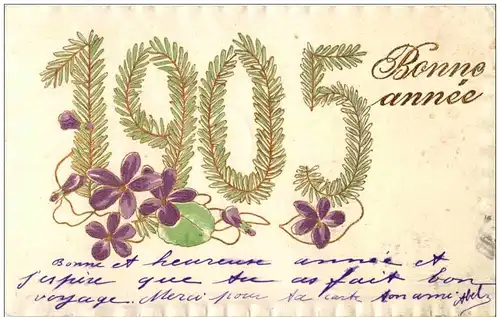 1905
Bonne
année
Bonne et heureuse année et
j'espère que tu as fait bon
voyage. Merci pour ta carte ton ami Abel